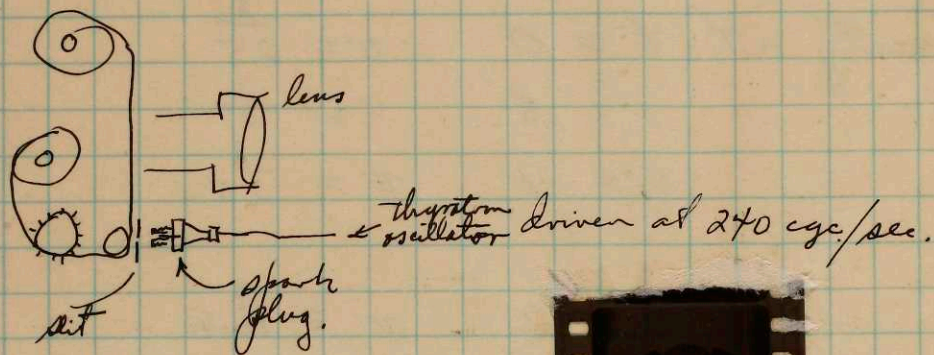 lens
thyratron
oscillator driven at 240 cyc/sec.
spark
plug.
slit